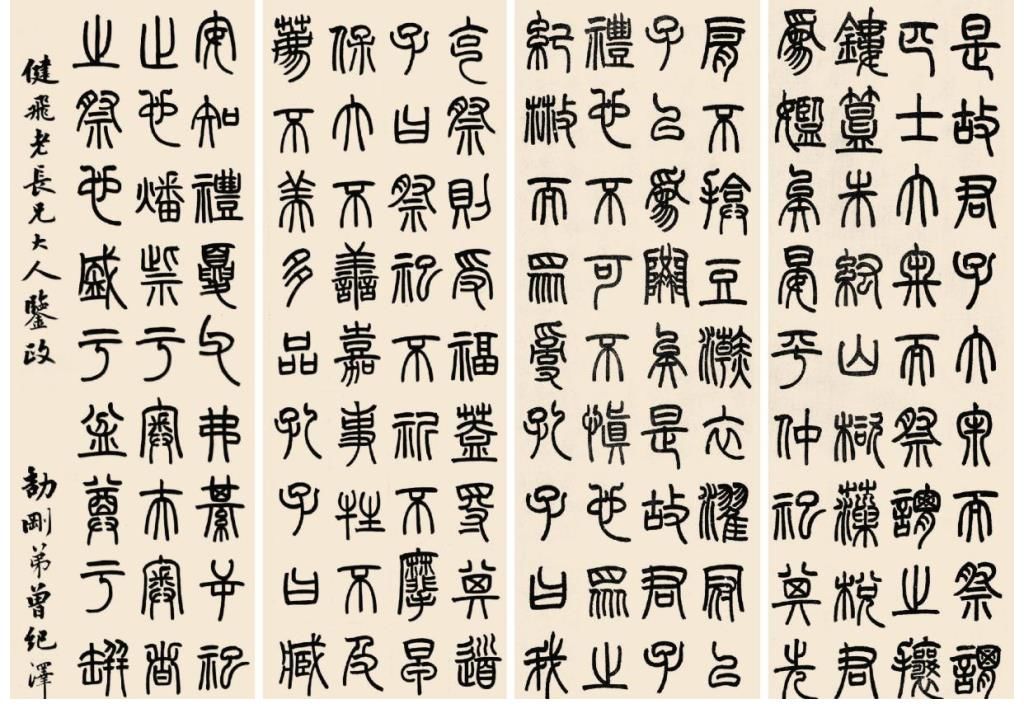 是故君子大牢而祭謂
匹士大牢而祭謂之攘
鏤簋朱紘山節藻梲君
為濫矣晏平仲祀其先
肩不揜豆澣衣濯冠以
子以為隘矣是故君子
禮也不可不慎也眾之
紀散而眾亂孔子曰我
克祭則受福蓋得其道
子曰祭祀不祈不麾蚤
保大不善嘉事牲不及
薦不美多品孔子曰臧
安知禮夏父弗綦逆祀
止也燔柴于奧夫奧者
之祭也盛于盆尊于缾
健飛老長兄大人鑒政
劼剛弟曾紀澤